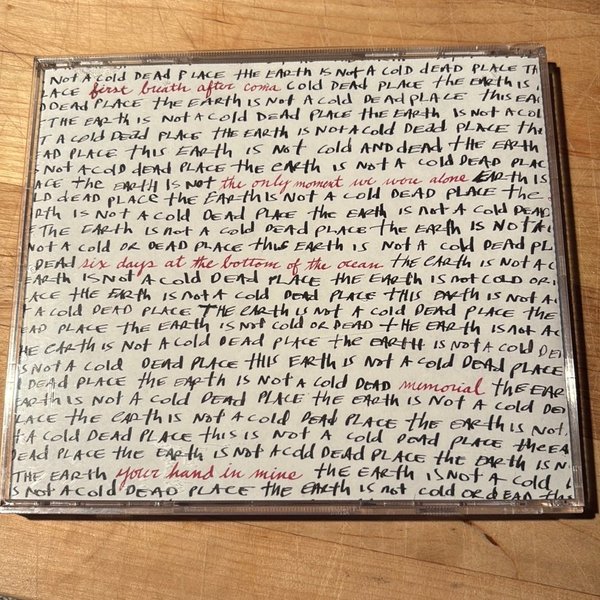 NOT A COLD DEAD PLACE THE EARTH IS NOT A COLD DEAD PLACE TH
LACE first breath after coma COLD DEAD PLACE THE EARTH IS
DEAD PLACE THE EARTH IS NOT A COLD DEAD PLACE THIS EA
THE EARTH IS NOT A COLD DEAD PLACE THE EARTH IS NOT A COL
T A COLD DEAD PLACE THE EARTH IS NOT A COLD DEAD PLACE THE
AD PLACE THIS EARTH IS NOT COLD AND DEAD THE EARTH
NOT A COLD DEAD PLACE THE EARTH IS NOT A COLD DEAD PLAC
ACE THE EARTH IS NOT the only moment we were alone EARTH IS
LD DEAD PLACE THE EARTH IS NOT A COLD DEAD PLACE THE
RTH IS NOT A COLD DEAD PLACE THE EARTH IS NOT A COLD DEAD
THE EARTH IS NOT A COLD DEAD PLACE THE EARTH IS NOT A
NOT A COLD OR DEAD PLACE THIS EARTH IS NOT A COLD DEAD PL
DEAD six days at the bottom of the ocean THE EARTH IS NOT A C
EARTH IS NOT A COLD DEAD PLACE THE EARTH IS NOT COLD OR
ACE THE EARTH IS NOT A COLD DEAD PLACE THIS EARTH IS NOT A
T A COLD DEAD PLACE THE EARTH IS NOT A COLD DEAD PLACE THE
EAD PLACE THE EARTH IS NOT COLD OR DEAD THE EARTH IS NOT A C
HE EARTH IS NOT A COLD DEAD PLACE THE EARTH IS NOT A COLD DE
IS NOT A COLD DEAD PLACE THIS EARTH IS NOT A COLD DEAD PLAC
DEAD PLACE THE EARTH IS NOT A COLD DEAD memorial THE EAR
EARTH IS NOT A COLD DEAD PLACE THE EARTH IS NOT A COLD DE
LACE THE EARTH IS NOT A COLD DEAD PLACE THE EARTH IS NOT
T A COLD DEAD PLACE THIS IS NOT A COLD DEAD PLACE THE EA
DEAD PLACE THE EARTH IS NOT A COLD DEAD PLACE THE EARTH IS N
THE EARTH your hand in mine THE EARTH IS NOT A COLD
IS NOT A COLD DEAD PLACE THE EARTH IS NOT COLD OR DEAD THE